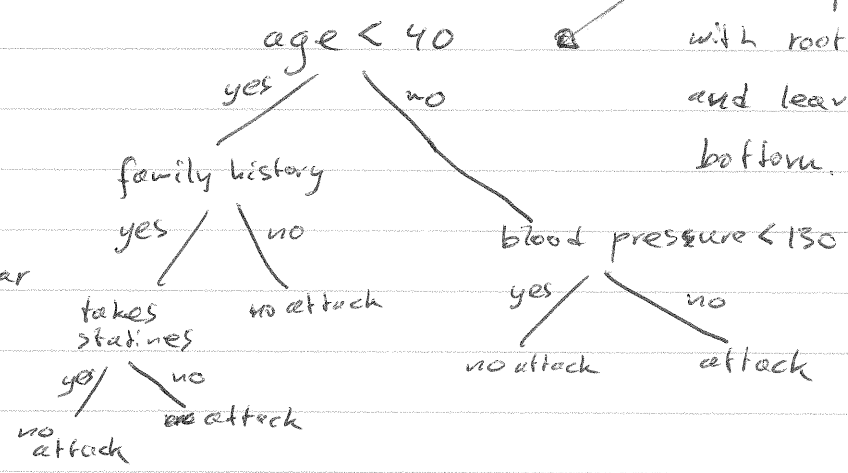 age < 40
with root
yes
no
and leav
bottom.
family history
yes
no
blood pressure < 130
ar
takes
statines
no attack
yes
no
yes
no
no attack
attack
no
attack
attack